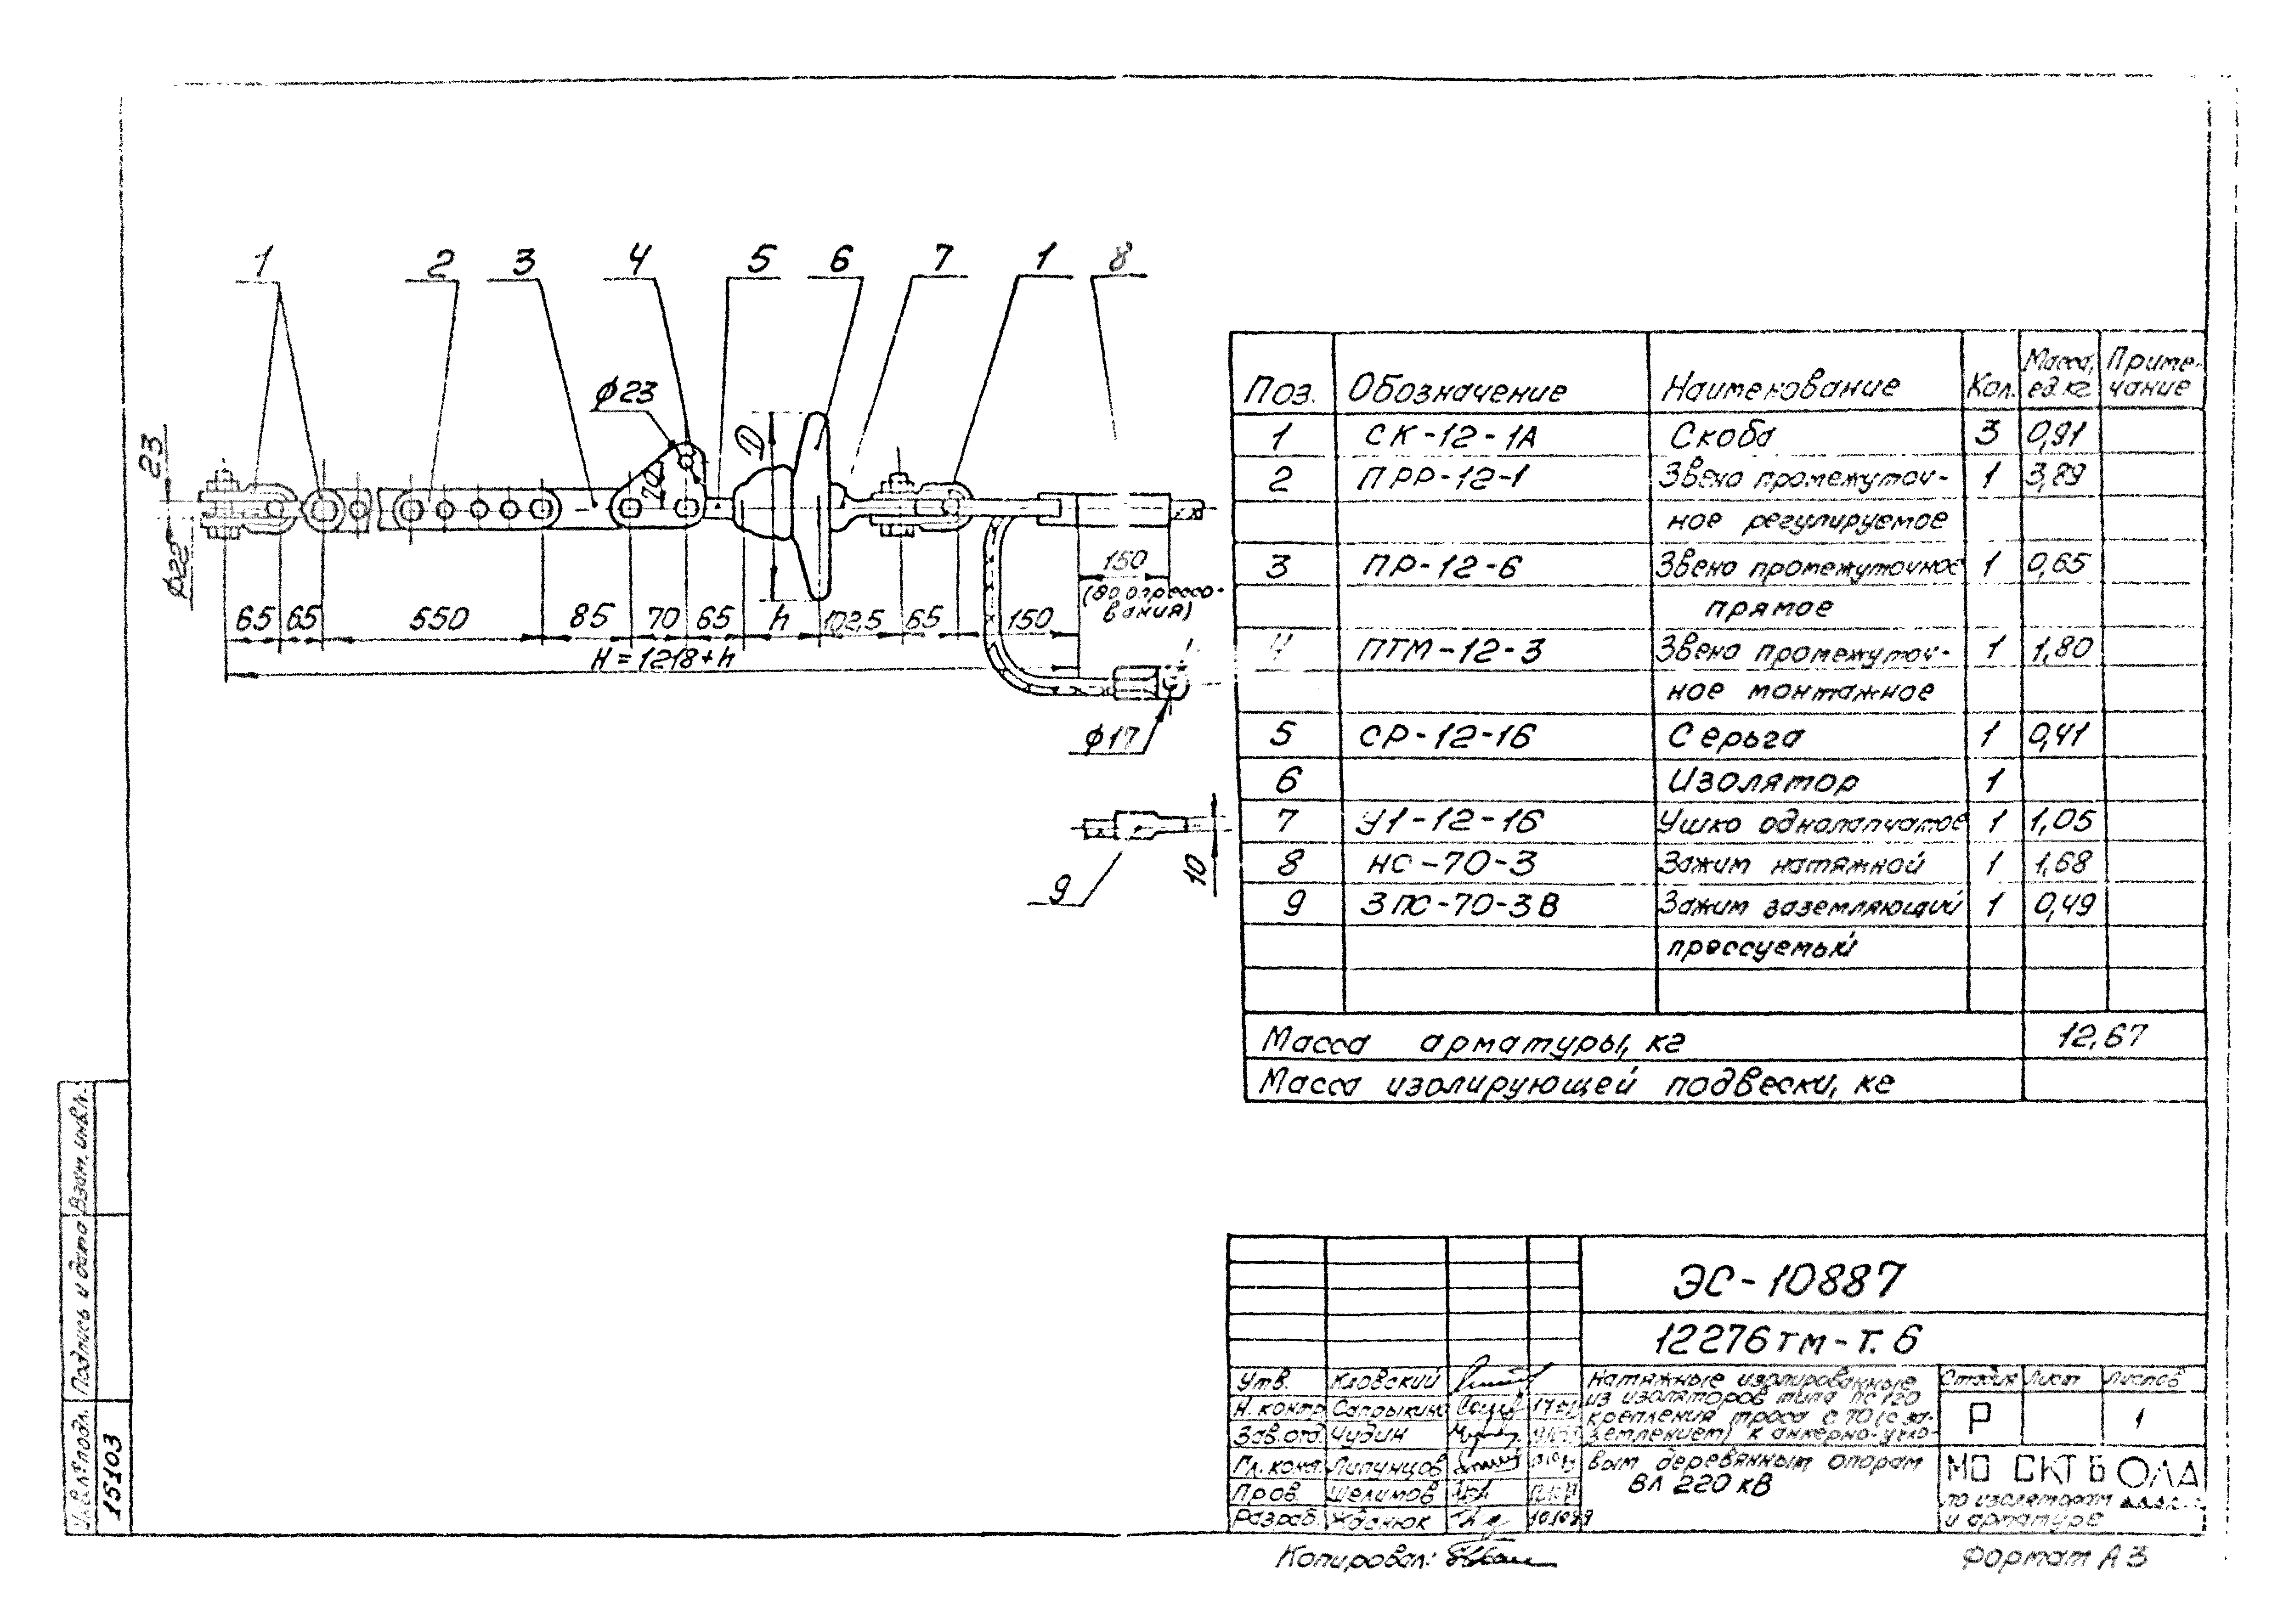 1 2 3 4 5 6 7 1 8
ф23
D
23
70
ф22
150
(до опрессо-
вания)
65 65 550 85 70 65 h 102,5 65 150
H=1218+h
ф17
10
9
Поз. Обозначение Наименование Кол. Масса, ед. кг Приме-чание
1 СК-12-1А Скоба 3 0,91
2 ПРР-12-1 Звено промежуточ- 1 3,89
ное регулируемое
3 ПР-12-6 Звено промежуточное 1 0,65
прямое
4 ПТМ-12-3 Звено промежуточ- 1 1,80
ное монтажное
5 СР-12-16 Серьга 1 0,41
6 Изолятор 1
7 У1-12-16 Ушко однолапчатое 1 1,05
8 НС-70-3 Зажим натяжной 1 1,68
9 ЗПС-70-3В Зажим заземляющий 1 0,49
прессуемый
Масса арматуры, кг 12,67
Масса изолирующей подвески, кг
ЭС-10887
12276тм-т.6
Утв. Кловский
Н. контр Сапрыкина
Зав.отд. Чудин
Гл. конт. Липунцов
Пров. Шелимов
Разраб. Жданюк
Натяжные изолированные
из изоляторов типа ПС120
крепления троса С70 (с за-
землением) к анкерно-угло-
вым деревянным опорам
ВЛ 220 кВ
Стадия Лист Листов
Р 1
МО СКТБ
по изоляторам
и арматуре
Копировал:
Формат А3
Взам. инв.№
Подпись и дата
Инв.№ подл.
15103